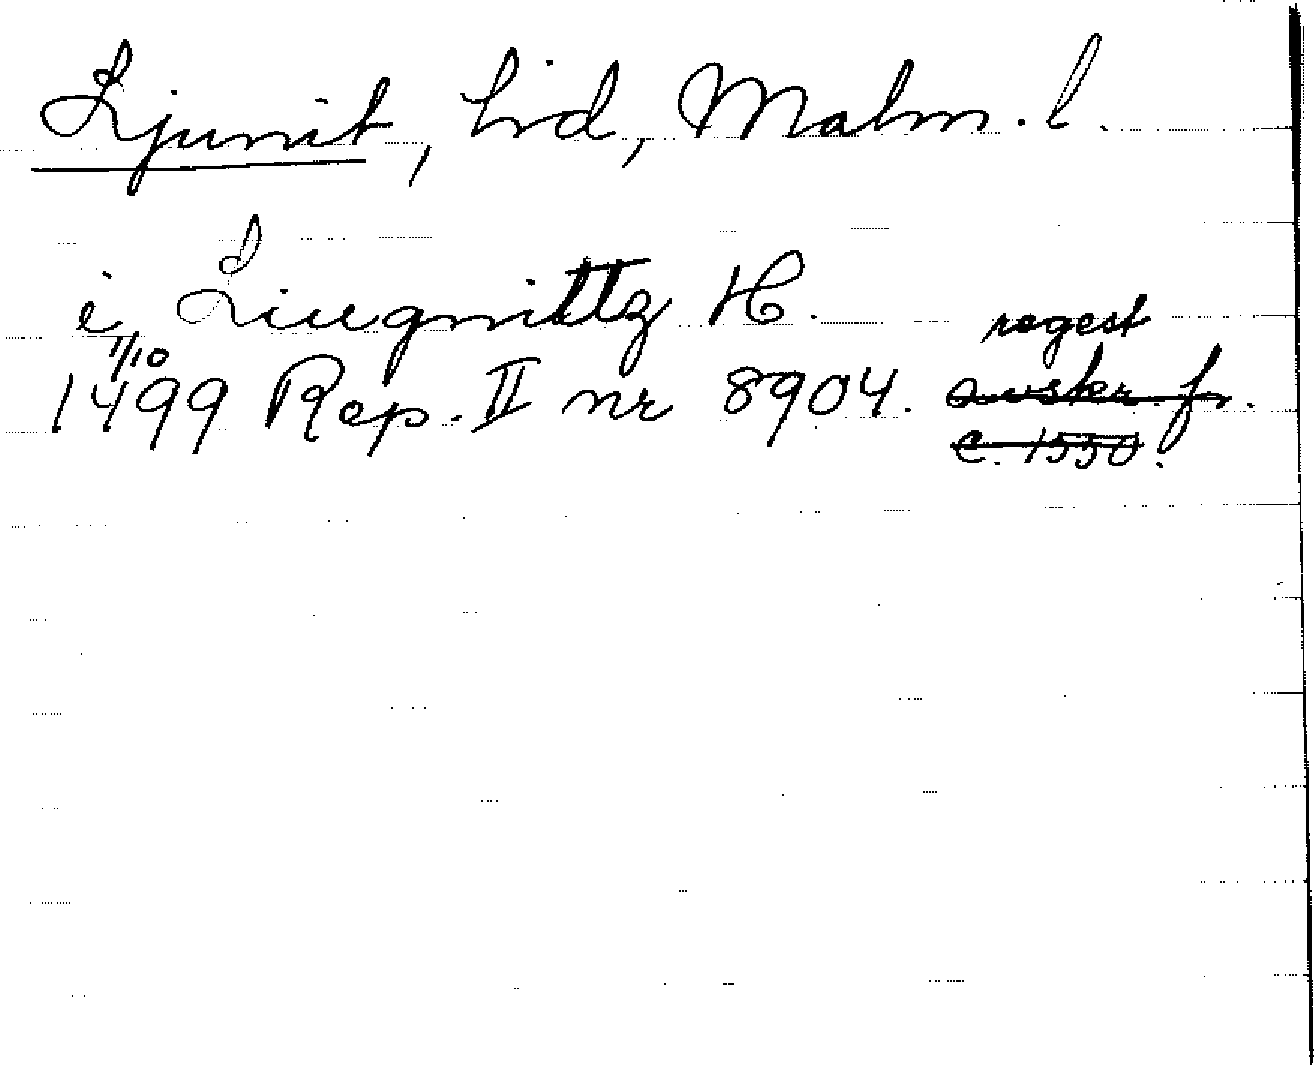 Ljunit, hd, Malm. l.
i Liugnittz H.
1/10 regest
1499 Rep. II nr 8904. avskr. fr.
c. 1550.